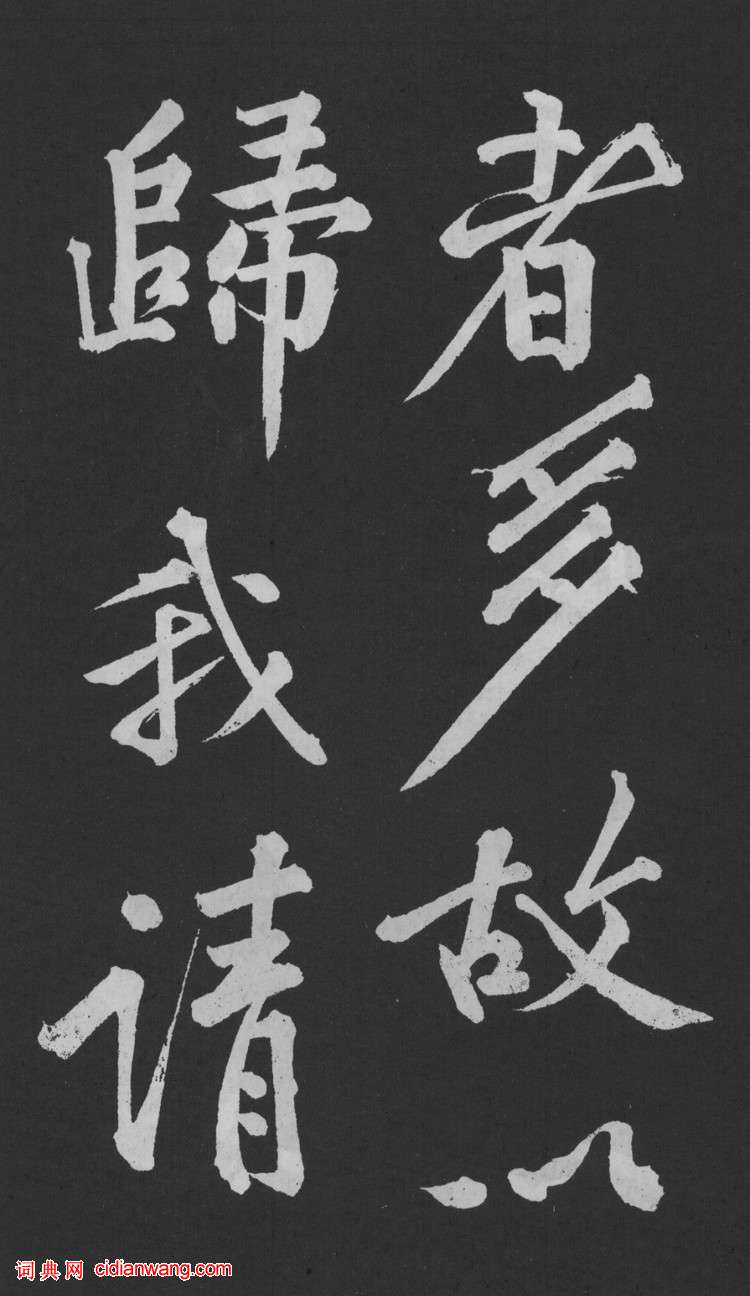 者多故以
歸我请
词典网 cidianwang.com